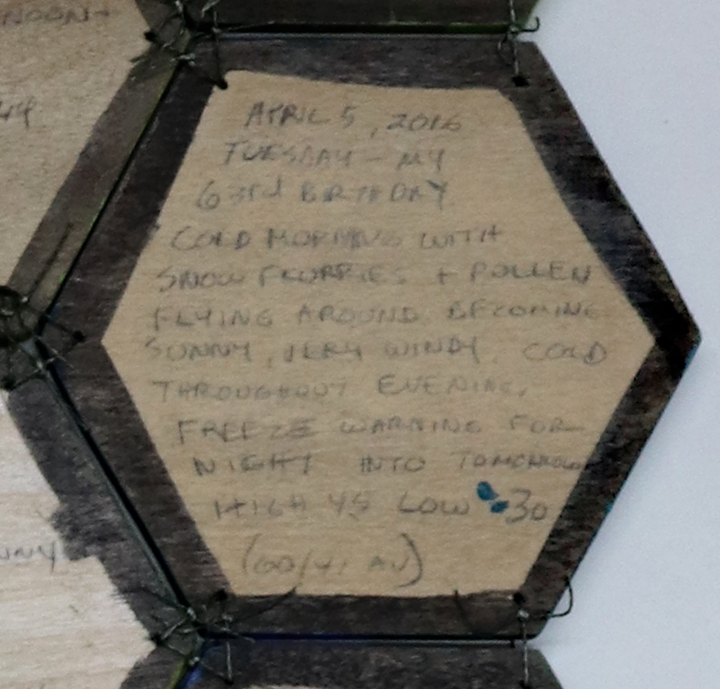 NOON-
44
APRIL 5, 2016
TUESDAY - MY
63rd BIRTHDAY
COLD MORNING WITH
SNOW FLURRIES + POLLEN
FLYING AROUND. BECOMING
SUNNY, VERY WINDY. COLD
THROUGHOUT EVENING.
FREEZE WARNING FOR
NIGHT INTO TOMORROW
HIGH 45 LOW 30
(60/41 AV)
NNY